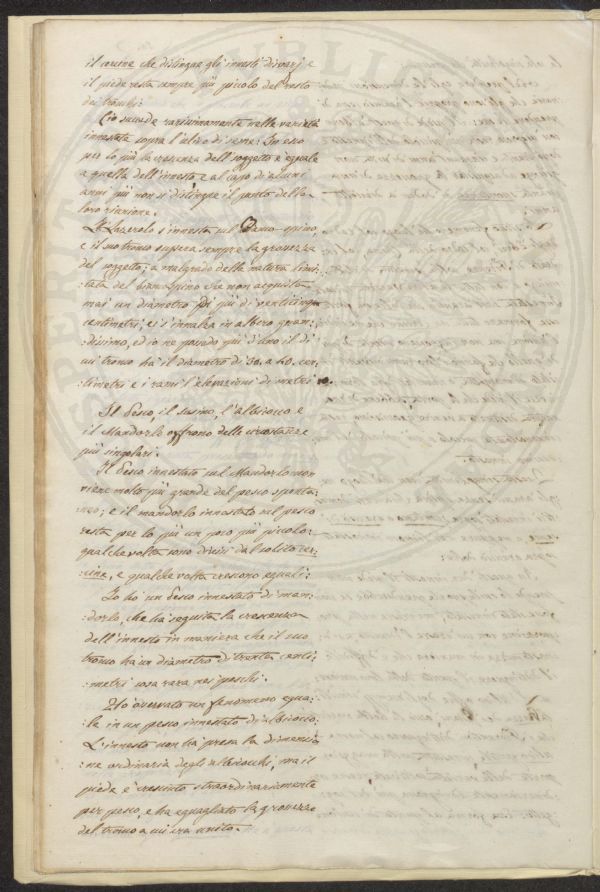 il cercine che distingue gli innesti diversi, e
il piede resta sempre più piccolo del resto
dei tronchi:
Ciò succede rarissimamente nelle varietà
innestate sopra l'altro di seme: In esso
per lo più la grossezza dell'soggetto è eguale
a quella dell'innesto e al capo di alcuni
anni più non si distingue il punto della
loro riunione.
L'Lazerolo s'innesta sul Biamo-spino,
e il suo tronco supera sempre la grossezza
del soggetto; a malgrado della natura limi:
:tata del biamospino che non acquista
mai un diametro di più di venticinque
centimetri, ei s'innalza in albero gran:
:dissimo, ed io ne possedo qui d'uno il di
cui tronco hà il diametro di 30. a 40. cen:
:timetri e i rami l'elevazioni di metri 10.
Il Pesco, il Susino, l'albicocco e
il Mandorlo offrono delle circostanze
più singolari.
Il Pesco innestato sul Mandorlo non
viene molto più grande del pesco sponta:
:neo; e il mandorlo innestato sul pesco
resta per lo più un poco più piccolo:
qualche volta sono divisi dal solito cer:
:cine, e qualche volta crescono eguali:
Io ho un Pesco innestato di man:
:dorlo, che ha seguita la crescenza
dell'innesto in maniera che il suo
tronco ha un diametro di trenta centi:
:metri cosa rara nei peschi.
Ho osservato un fenomeno egua:
:le in un pesco innestato di albicocco.
L'innesto non hà presa la dimensio
:ne ordinaria degli albicocchi, ma il
piede è cresciuto straordinariamente
per pesco, e ha eguagliato la grossezza
del tronco a cui era unito.